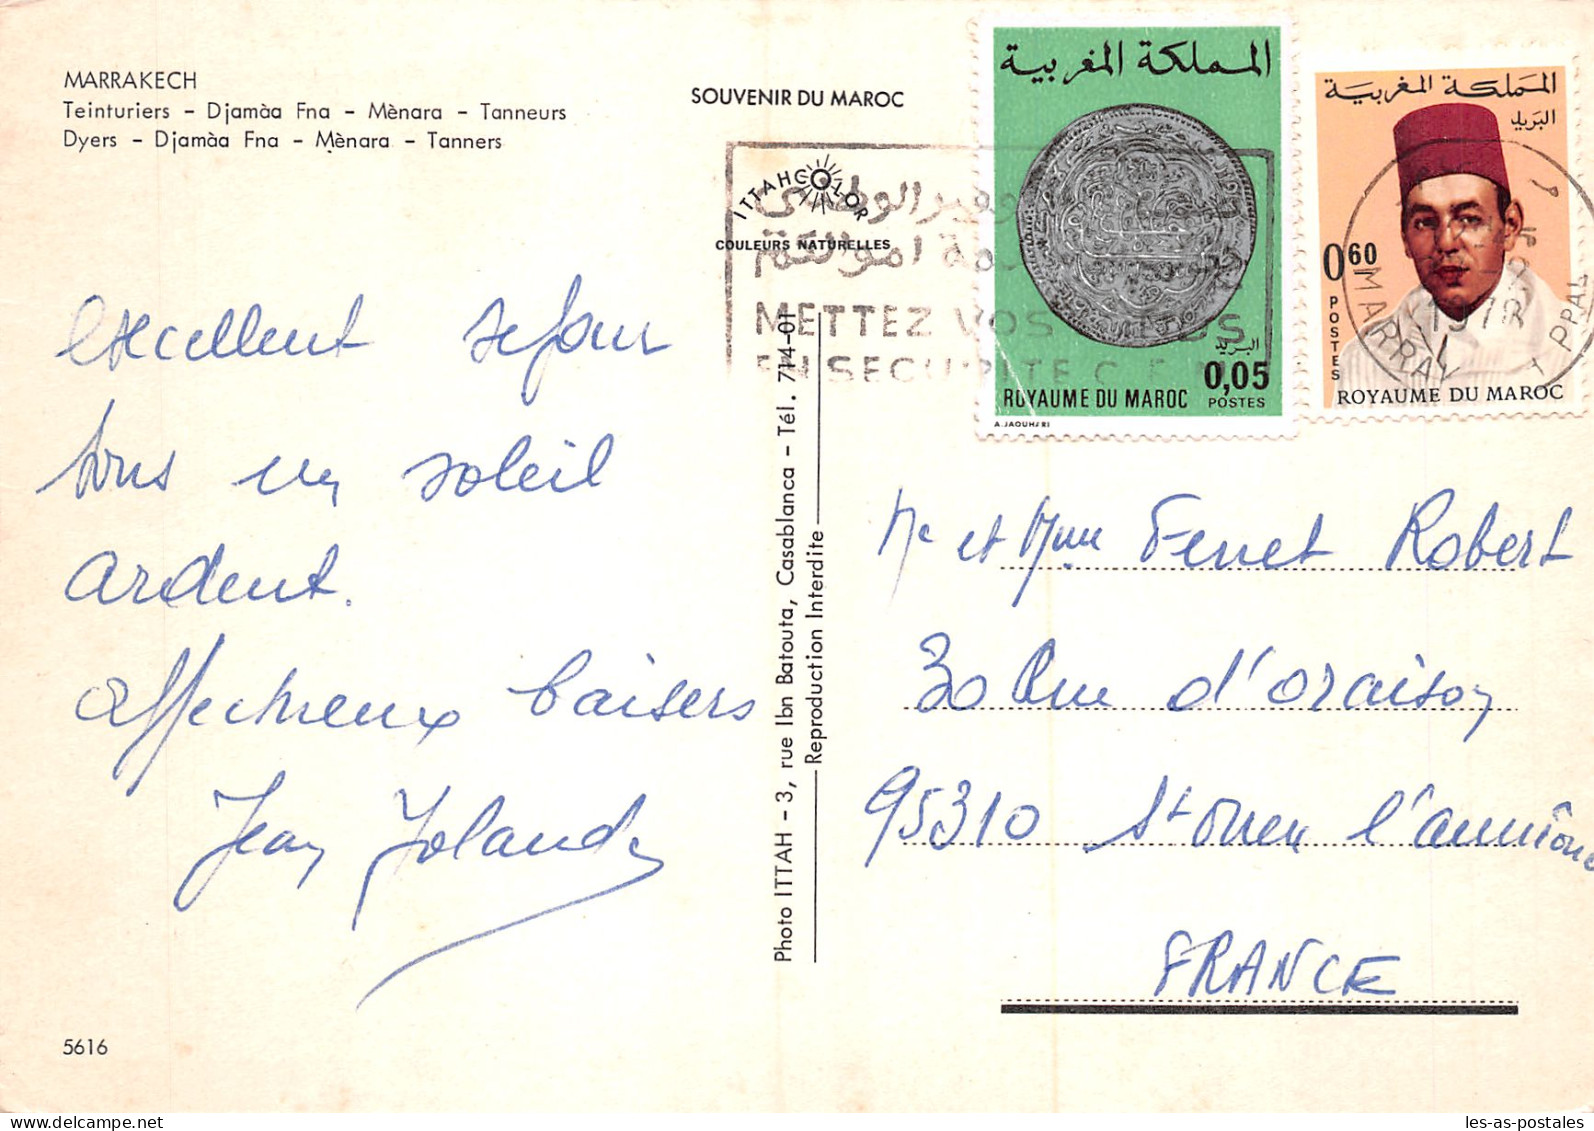 MARRAKECH
Teinturiers - Djamàa Fna - Mènara - Tanneurs
Dyers - Djamàa Fna - Mènara - Tanners
SOUVENIR DU MAROC
ITTAHCOLOR
COULEURS NATURELLES
المملكة المغربية
0,05
البريد
ROYAUME DU MAROC
POSTES
A.JAOUHARI
المملكة المغربية
البريد
0,60
POSTES
ROYAUME DU MAROC
METTEZ VOS
EN SECURITE C
MARRAK PPAL
1978
excellent sejour
sous un soleil
ardent.
affectueux baisers
Jean Yolande
Photo ITTAH - 3, rue Ibn Batouta, Casablanca - Tél. 714-01
Reproduction Interdite
Mr et Mme Ferret Robert
30 Rue d'oraison
95310 St Ouen l'aumône
FRANCE
5616
les-as-postales